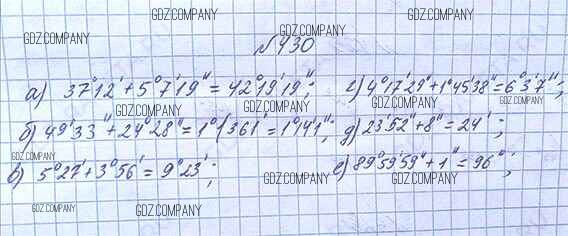 GDZ.COMPANY
GDZ.COMPANY
GDZ.COMPANY
GDZ.COMPANY
№430
а) 37°12' + 5°7'19" = 42°19'19";
г) 4°17'29" + 1°45'38" = 6°3'7";
GDZ.COMPANY
GDZ.COMPANY
GDZ.COMPANY
б) 49'33" + 24°28" = 1°1361' = 1°14'1";
д) 23'52" + 8" = 24';
GDZ.COMPANY
в) 5°27' + 3°56' = 9°23';
е) 89°59'59" + 1" = 96°;
GDZ.COMPANY
GDZ.COMPANY
GDZ.COMPANY
GDZ.COMPANY